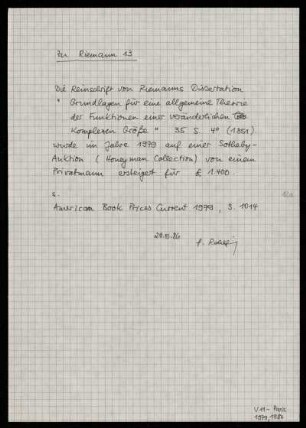 Zu Riemann 13
Die Reinschrift von Riemanns Dissertation
" Grundlagen für eine allgemeine Theorie
der Funktionen einer veränderlichen
komplexen Größe " 35 S. 4° (1851)
wurde im Jahre 1979 auf einer Sotheby-
Auktion ( Honeyman Collection) von einem
Privatmann ersteigert für £ 1400
s.
American Book Prices Current 1979, S. 1014